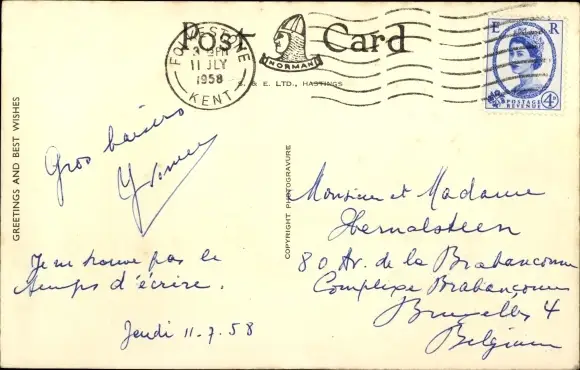 Post Card
NORMAN
S. & E. LTD., HASTINGS
FOLKESTONE
3 30PM
11 JLY
1958
KENT
E R
4D
POSTAGE
REVENUE
GREETINGS AND BEST WISHES
COPYRIGHT PHOTOGRAVURE
Gros baisers
Je ne trouve pas le
temps d'écrire.
Jeudi 11.7.58
Monsieur et Madame
Hernalsteen
80 Av. de la Brabançonne
Complexe Brabançonne
Bruxelles 4
Belgium